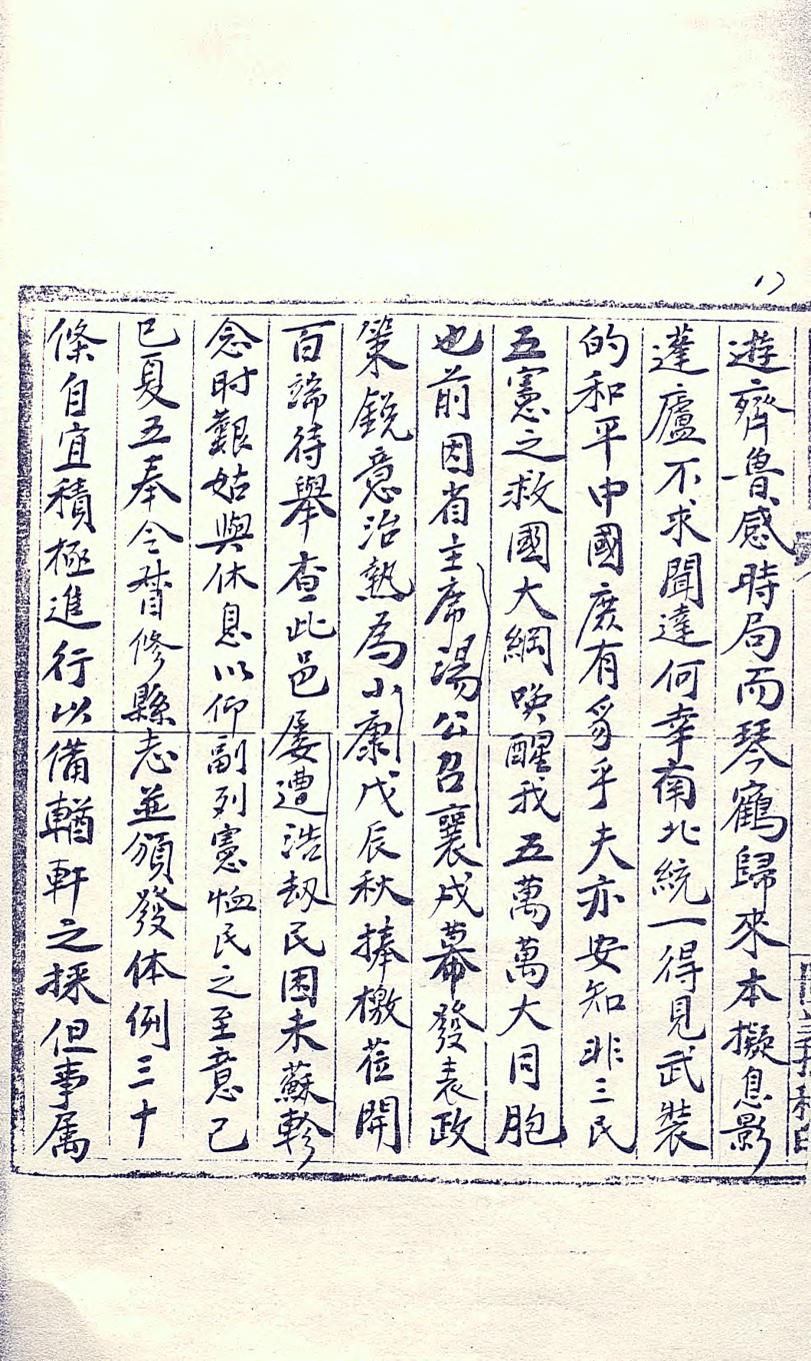 遊齊魯感時局而琴鶴歸來本擬息影
蓬廬不求聞達何幸南北統一得見武裝
的和平中國庶有豸乎夫亦安知非三民
五憲之救國大綱喚醒我五萬萬大同胞
也前因省主席湯公召襄戎幕發表政
策銳意治熱為小康戊辰秋捧檄蒞開
百端待舉查此邑屢遭浩劫民困未蘇軫
念时艱姑與休息以仰副列憲恤民之至意己
巳夏五奉令督修縣志並頒發体例三十
條自宜積極進行以備輶軒之採但事属